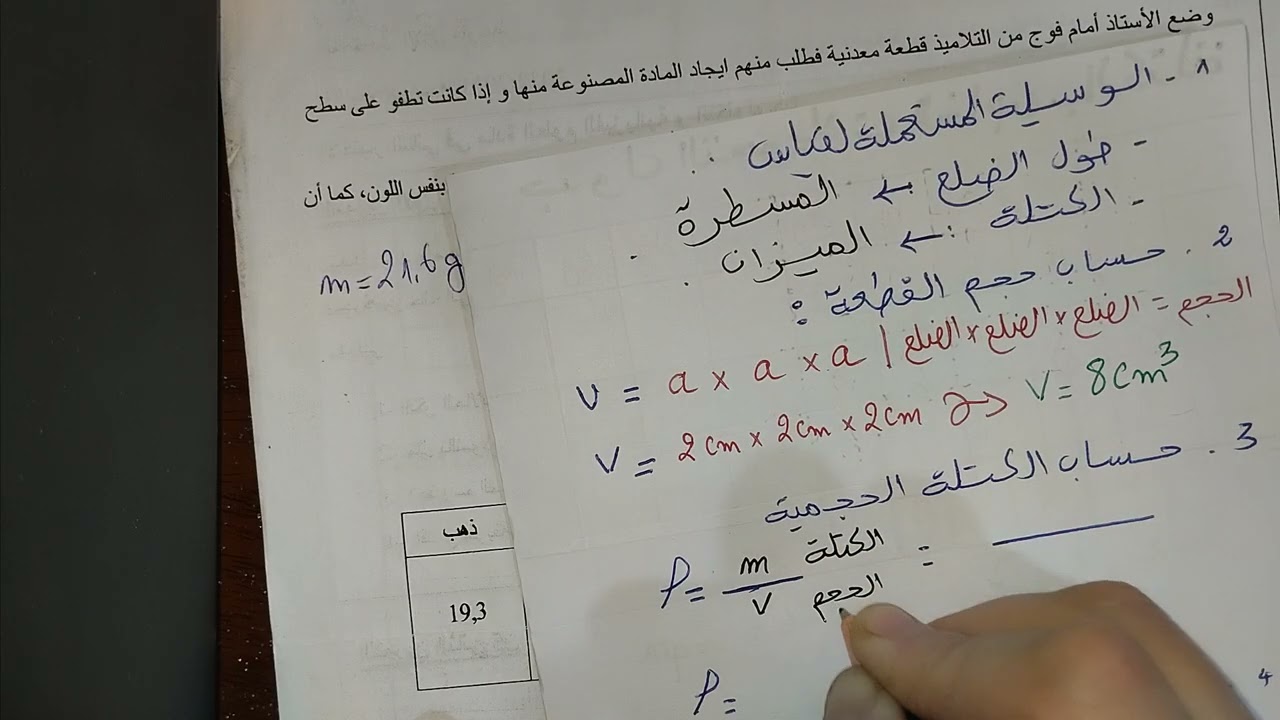 وضع الأستاذ أمام فوج من التلاميذ قطعة معدنية فطلب منهم ايجاد المادة المصنوعة منها و إذا كانت تطفو على سطح
بنفس اللون، كما أن
m = 21,6 g
1 - الوسيلة المستعملة لقياس :
- طول الضلع ← المسطرة .
- الكتلة : ← الميزان .
2 . حساب حجم القطعة :
الحجم = الضلع × الضلع × الضلع | V = a × a × a
V = 2 cm × 2 cm × 2 cm => V = 8 cm³
3 . حساب الكتلة الحجمية
ρ = m / V الكتلة الحجم =
ρ =
ذهب
19,3
4